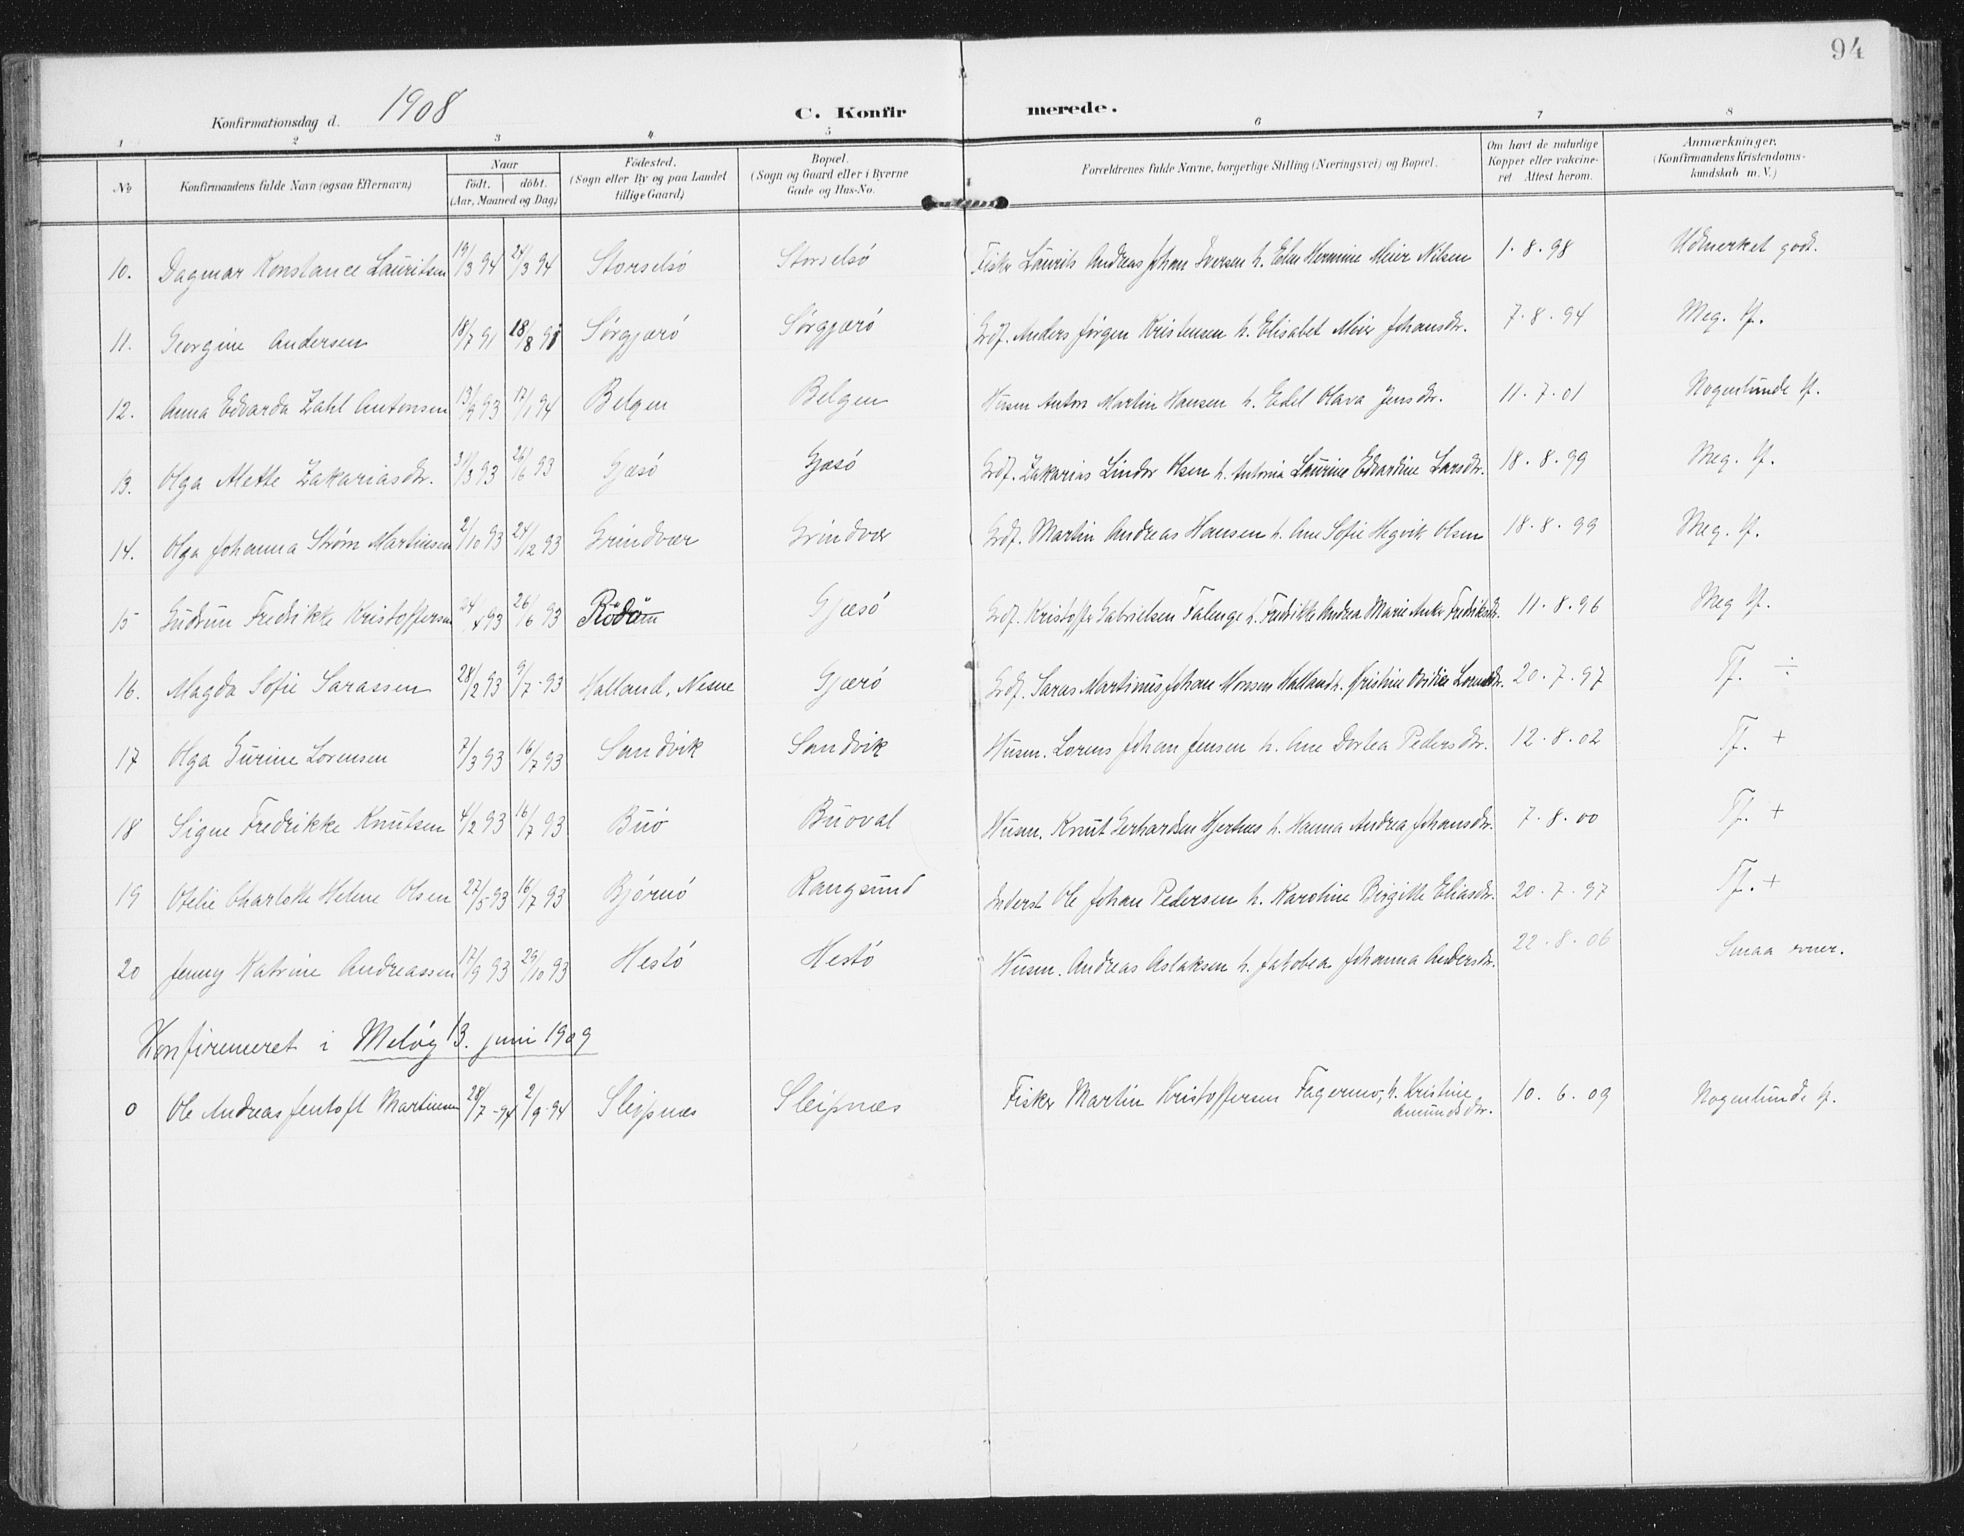 94
Konfirmationsdag d. 1908 C. Konfir merede.
1 2 3 4 5 6 7 8
No Konfirmandens fulde Navn (ogsaa Efternavn) Naar født. døbt. (Aar, Maaned og Dag) Fødested. (Sogn eller By og paa Landet tillige Gaard) Bopæl. (Sogn og Gaard eller i Byerne Gade og Hus-No. Forældrenes fulde Navne, borgerlige Stilling (Næringsvei) og Bopæl. Om havt de naturlige Kopper eller vakcineret. Attest herom. Anmærkninger. (Konfirmandens Kristendomskundskab m. V.)
10. Dagmar Konstance Lauritsen 19/3 94 24/3 94 Storselsö Storselsö Fisker Laurits Andreas Johan Iversen h. Elen Hermine Meier Nilsen 1. 8. 98 Udmerket godt.
11. Georgine Andersen 18/7 91 18/8 91 Sørgjærö Sørgjærö Grdf. Anders Jörgen Kristensen h. Elisabet Meier Johansdtr. 7. 8. 94 Meg. tf.
12. Anna Edvarda Zahl Antonsen 13/9 93 17/1 94 Belgen Belgen Husm Anton Martin Hansen h. Edel Olava Jensdtr. 11. 7. 01 Nogenlunde tf.
13. Olga Mette Zakariasdtr. 31/3 93 26/6 93 Gjæsö Gjæsö Grdf. Zakarias Lindor Olsen h. Antonia Laurine Edvardine Larsdtr. 18. 8. 99 Meg. tf.
14. Olga Johanna Strøm Martinsen 2/10 93 24/12 93 Grindvær Grindvær Grdf. Martin Andreas Hansen h. Ane Sofie Hegvik Olsen 18. 8. 99 Meg. tf.
15 Gudrun Fredrikke Kristoffersen 93 26/6 93 Rödöen Gjæsö Grdf. Kristoffer Gabrielsen Falenge h. Fredrikke Andrea Marie Anker Fredriksdtr. 11. 8. 96 Meg tf.
16. Magda Sofie Sarassen 28/2 93 9/7 - 93 Halland, Nesne Gjærö Grdf. Saras Martinus Johan Monsen Halland h. Kristine Ovidie Lorntsdtr. 20. 7. 97 Tf. ÷
17 Olga Gurine Lorensen 7/3 93 16/7 93 Sandvik Sandvik Husm. Lorens Johan Jensen h. Ane Dortea Pedersdtr. 12. 8. 02 Tf. +
18 Signe Fredrikke Knutsen 4/2 93 16/7 93 Buö Buoval Husm. Knut Gerhardsen Hjertnes h. Hanna Andrea Johansdtr. 7. 8. 00 Tf. +
19 Otelie Charlotte Helene Olsen 27/5 93 16/7 93 Bjørnö Rangsund Inderst Ole Johan Pedersen h. Karoline Birgitte Eliasdtr. 20. 7. 97 Tf. +
20 Jenny Katrine Andreassen 17/9 93 29/10 93 Hestö Hestö Husm. Andreas Aslaksen h. Jakobea Johanna Andersdtr. 22. 8. 06 Smaa evner.
Konfirmeret i Meløy 13. juni 1909
0 Ole Andreas Jentoft Martinsen 28/7 - 94 2/9 - 94 Sleipnæs Sleipnæs Fisker Martin Kristoffersen Fagermo, h. Kristine Amundsdtr. 10. 6. 09 Nogenlunde tf.